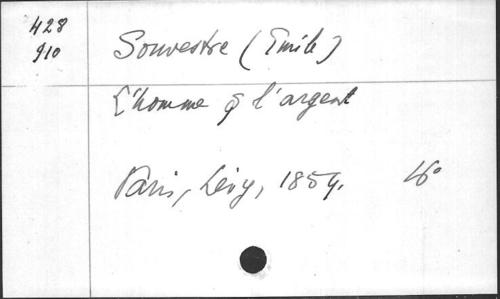 428
910
Souvestre (Emile)
L'homme & l'argent
Paris, Lévy, 1859. 16°